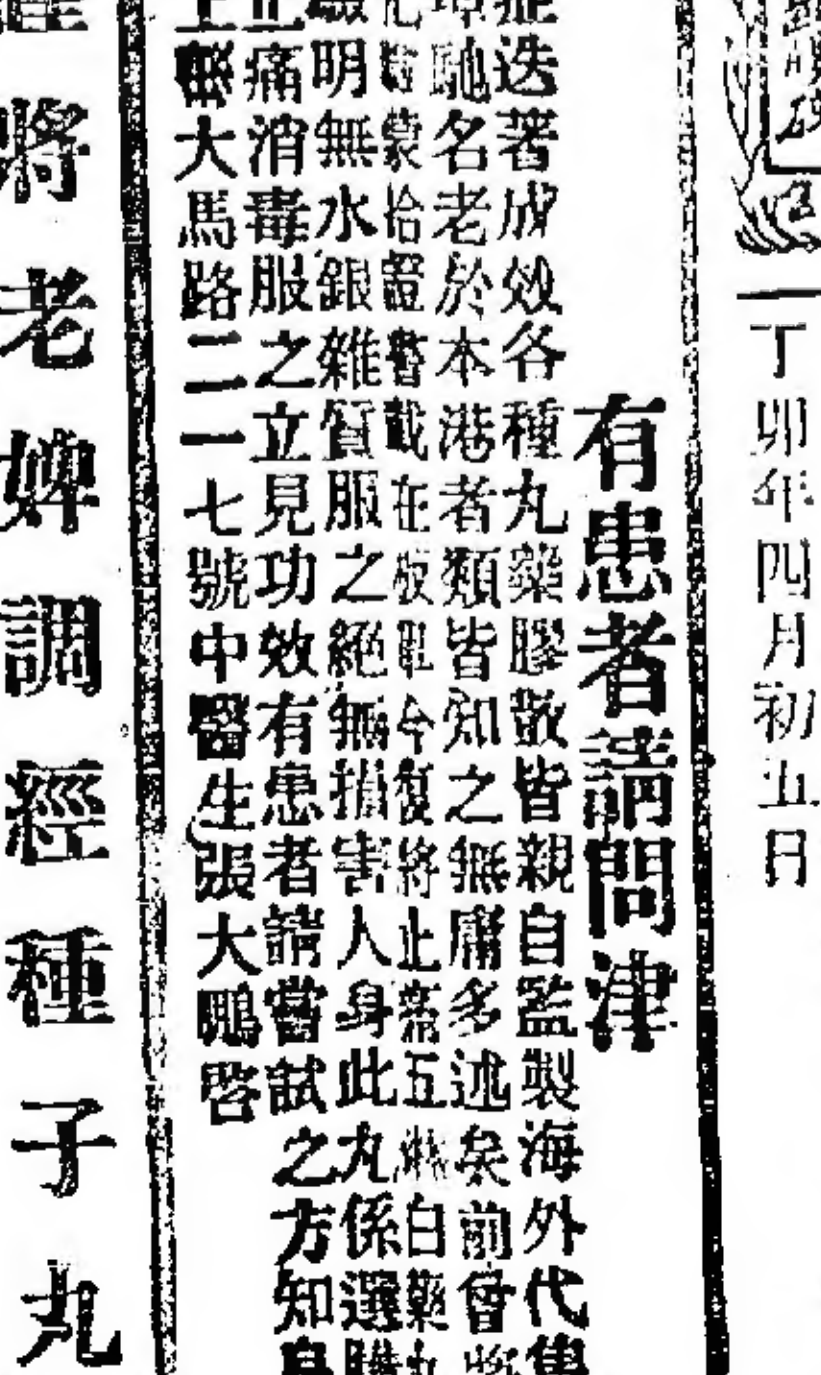 丁卯年四月初五日
有患者請問津
症迭著成效各種丸藥膠散皆親自監製海外代售
馳名老於本港者類皆知之無庸多述矣前曾將
蒙給證書載在版 今復將止 五淋白藥丸
驗明無水銀雜質服之絕無損害人身此丸係選購
止痛消毒服之立見功效有患者請嘗試之方知
上 大馬路二一七號中醫生張大鵬啓
將老婢調經種子丸